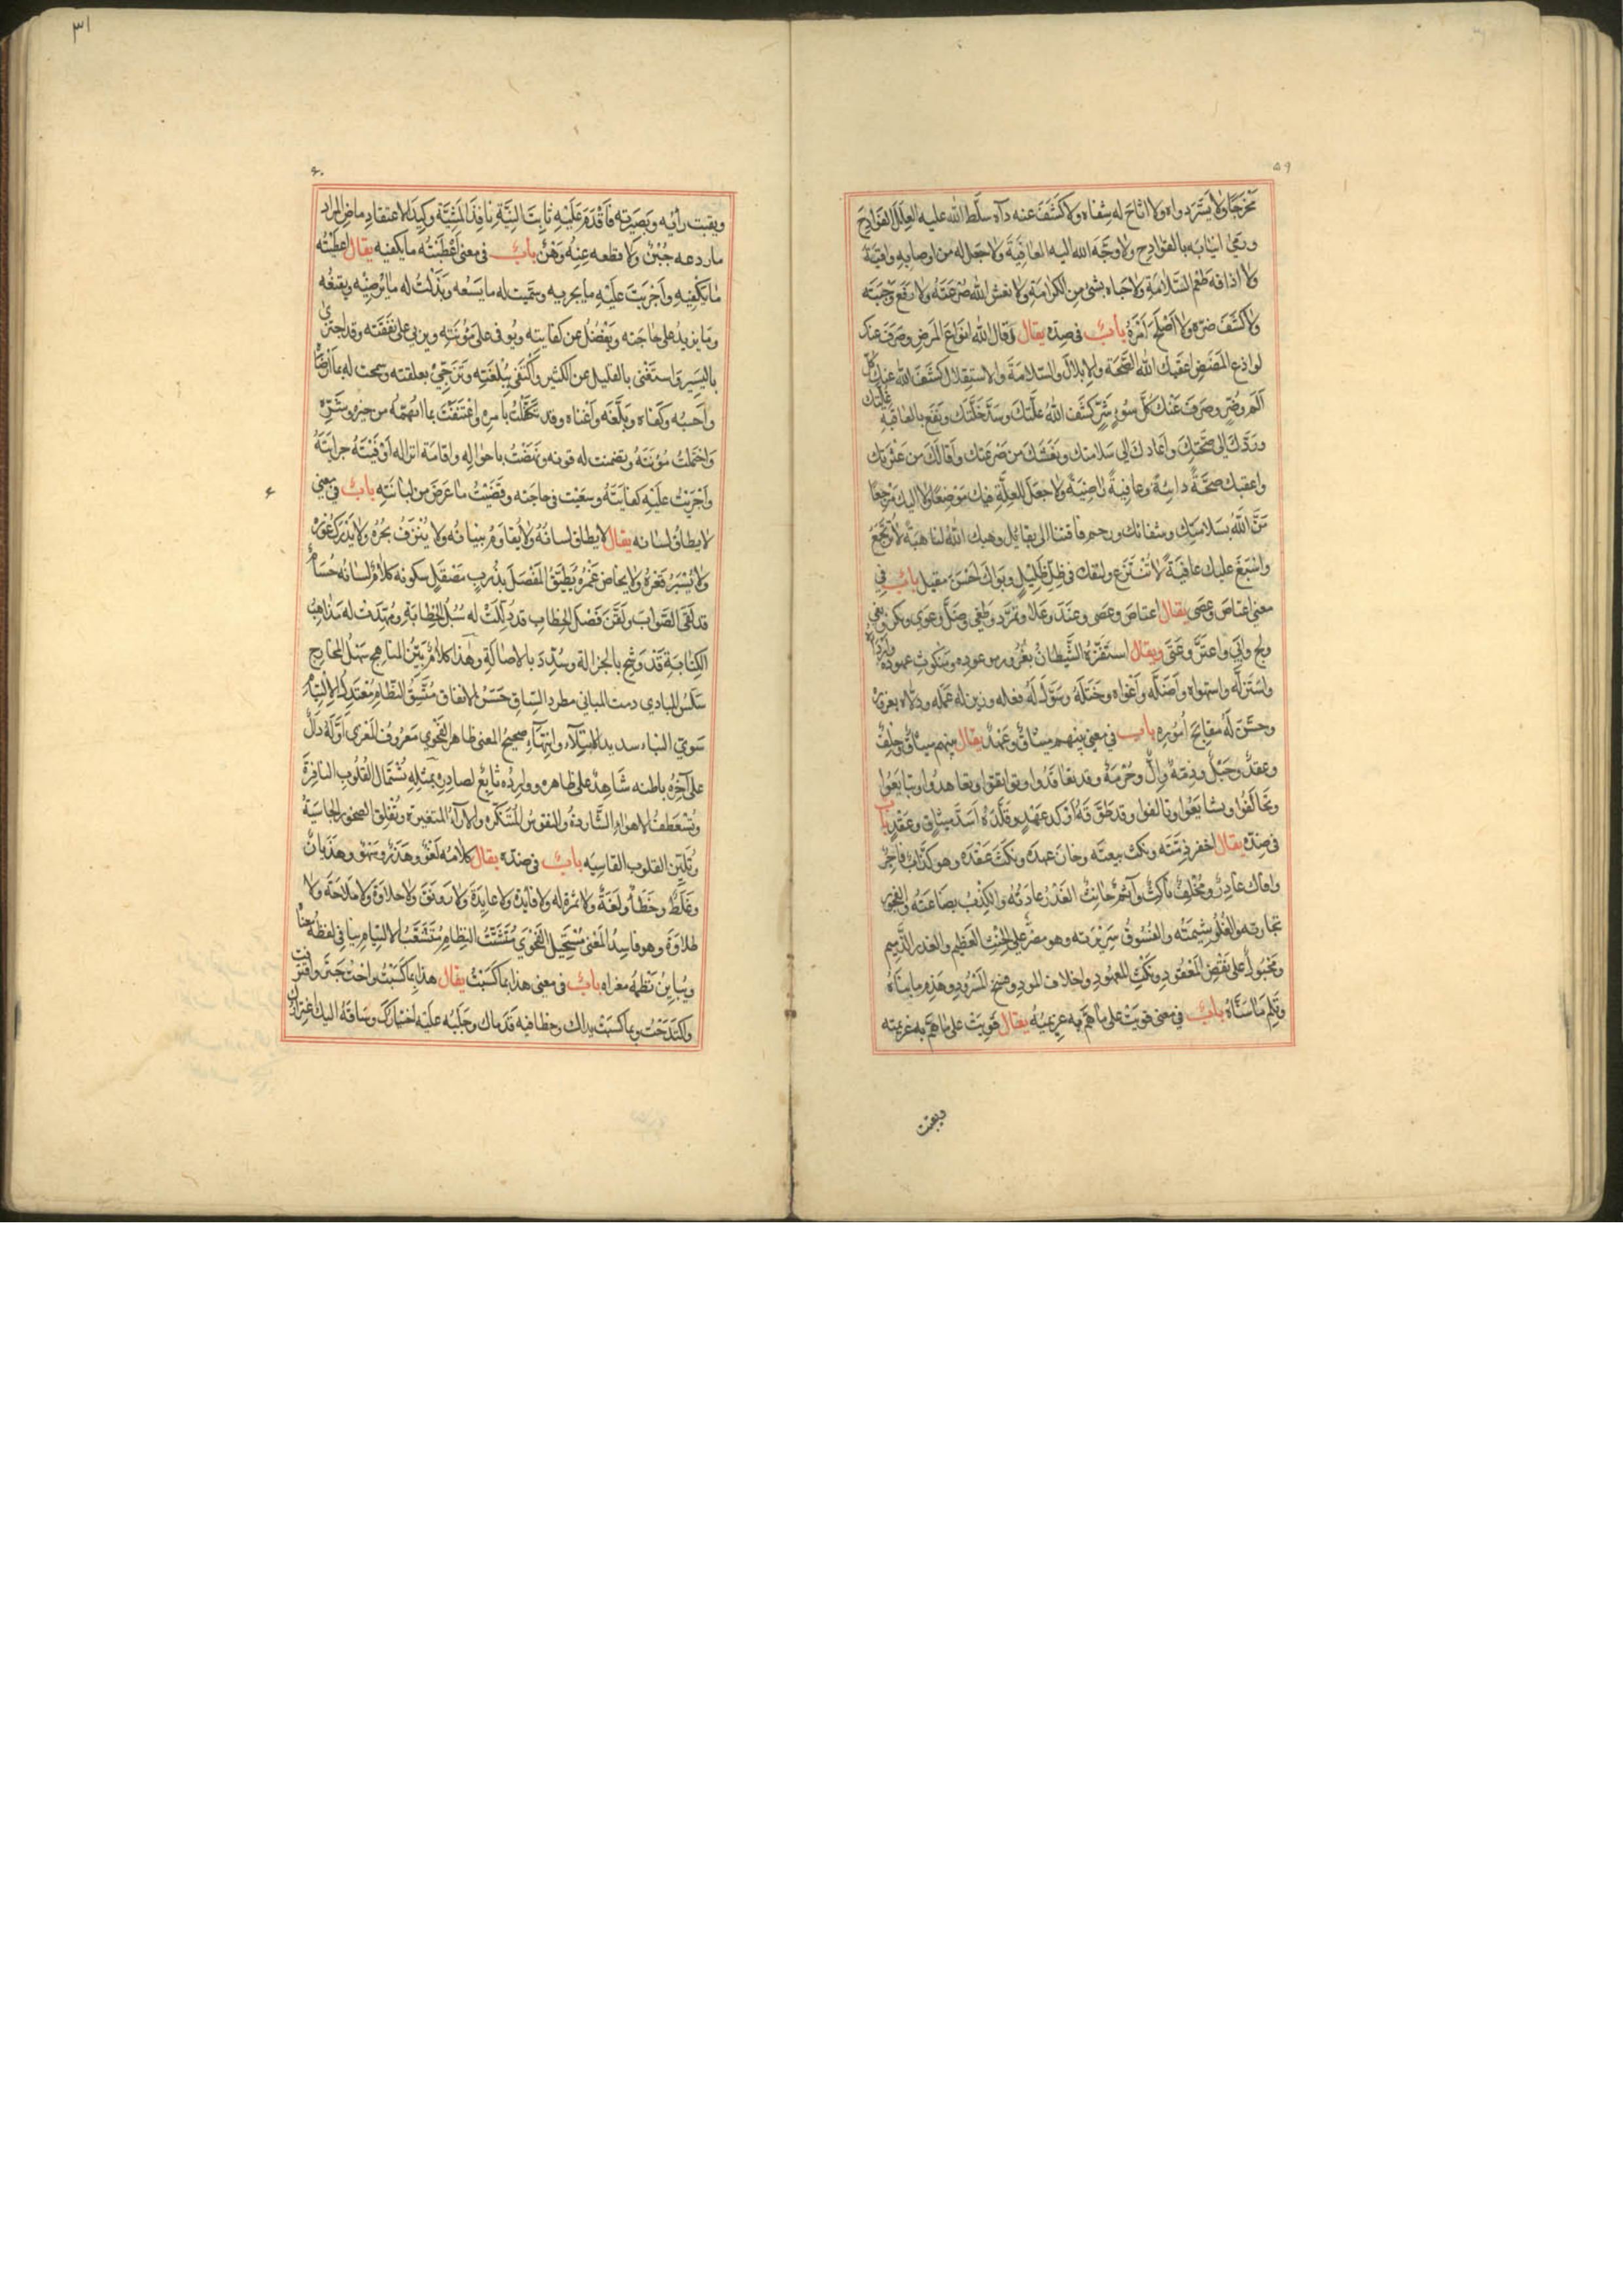 ٥٩
مخرجًا ولا يسّر دواه ولا اتاح له شفاه ولا كشف عنه دآه سلّط الله عليه العلل الفوادح
ورمى انيابه بالفوادح ولا وجّه الله اليه العافية ولا جعل له من اوصابه واقية
ولا اذاقه طعم السّلامة ولا حباه بشئ من الكرامة ولا نعش الله صرعته ولا رفع وجبته
ولا كشف ضرّه ولا اصلح امره باب فى ضده يقال وقاك الله انواع المرض وصرف عنك
لواذع المضض اعقبك الله الصّحة والابلال والسّلامة والاستقلال كشف الله عنك كلّ
الم وضرّ وصرف عنك كلّ سوء وشرّ كشف الله علّتك وسدّ خلّتك ونقع بالعافية غلّتك
وردّك الى صحّتك واعادك الى سلامتك ونعشك من صرعتك واقالك من عثرتك
واعقبك صحّة دائمة وعافية راضية ولا جعل للعلّة فيك موضعًا ولا اليك مرجعًا
منّ الله بسلامتك وشفائك ورحم فاقتنا الى بقائك ووهبك الله لنا هبة لا ترتجع
واسبغ عليك عافية لا تنتزع ولقاك فى ظلّ ظليل وبوّاك احسن مقيل باب في
معنى اعتاص وعصى يقال اعتاص وعصى وعند وعلا وتمرّد وطغى وضلّ وغوى ونكر وبغى
ولجّ وابى واعتزّ وعتى ويقال استفزّه الشّيطان بغرور موعوده ومنكوث عهوده
واستزلّه واستهواه واضلّه واغواه وختله وسوّل له فعله وزين له عمله ودلّاه بغروره
وحسّن له مقابح اموره باب في معنى بينهم ميثاق وعهد يقال بينهم ميثاق وحلف
وعقد وحبل وذمّة والّ وحرمة وقد تعاقدوا وتواثقوا وتعاهدوا وتبايعوا
وتحالفوا وتشايعوا وتالفوا وقد طوّقه اوكد عهد وقلّده اشدّ ميثاق وعقد باب
فى ضدّه يقال اخفر ذمّته ونكث بيعته وخان عهده ونكث عقده وهو كذّاب فاجر
وافاك غادر ومخلف ناكث وآثم حانث الغدر عادته والكذب بضاعته والفجور
تجارته والغلو شيمته والفسوق سريرته وهو مصرّ على الحنث العظيم والغدر الذّميم
ومجبول على نقض المعقود ونكث المعهود واخلاف الموعود
باب في معنى قويت على ما همّ به عزيمته يقال قويت على ما همّ به عزيمته
٣١
٦٠
وثقبت رأيه وبصيرته فاقدم عليه ثابت النيّة نافذ المشيّة وكيد الاعتقاد ماضى المراد
ما ردعه جبن ولا قطعه عنه وهن باب فى معنى اعطيته ما يكفيه يقال اعطيته
ما يكفيه واجريت عليه ما يجزيه وسمّيت له ما يسعه وبذلت له ما يرضيه ويقنعه
وما يزيد على حاجته ويفضل عن كفايته ويوفى على مؤنته ويربى على نفقته وقد اجتزى
باليسير واستغنى بالقليل عن الكثير واكتفى ببلغته وتزجّى بعلقته وسمحت له بما ارضاه
واحسبه وكفاه وبلّغه واغناه وقد تكفّلت بامره واعتنقت بما اتهمّه من خيره وشرّه
واحتملت مؤنته وتضمنت له قوته ونهضت باحواله واقامة انزاله اوفيته جرايته
واجريت عليه كفايته وسعيت فى حاجته وقضيت ما عرض من لبانته باب في معنى
لا يطاق لسانه يقال لا يطاق لسانه ولا يقاوم بيانه ولا ينزف بحره ولا يدرك غوره
ولا يسبر قعره ولا يخاض غمره يطبّق المفصل بذرب مصقل سكوته كلام لسانه حسام
قد لقّى الصّواب ولقّن فصل الخطاب قد ذلّلت له سبل الخطابة ومهّدت له مذاهب
الكتابة قد وشّح بالجزالة وسدّد بالاصالة وهذا كلام بيّن المناهج سهل المخارج
سلس المبادي دمث المباني مطرد السّياق حسن الاتفاق متّسق النّظام معتدل الالتيام
سوي البناء سديد الابتداء وانتهاء صحيح المعنى ظاهر الفحوى معروف المغزى اوّله دالّ
على آخره باطنه شاهد على ظاهره ووارده تابع لصادره بمثله تستمال القلوب النافرة
وتستعطف الاهواء الشّاردة والنفوس المتنكره والاراء المتغيرة وتفلق الصخور الجاسية
وتليّن القلوب القاسيه باب فى ضدّه يقال كلامه لغو وهذر وسهو وهذيان
وغلط وخطأ ولغة ولا ثمرة له ولا فايدة ولا عايدة ولا رونق ولا حلاوة ولا ملاحة ولا
طلاوة وهو فاسد المعنى مستحيل الفحوى متشتّت النظام متشعّب الالتيام ينافى لفظه معناه
ويباين نظمه مغزاه باب فى معنى هذا بما كسبت يقال هذا بما كسبت واجتنيت واقترفت
واكتدحت وبما كسبت يداك وخطا فيه قدماك وجلبه عليه اختيارك وساقه اليك اغترارك